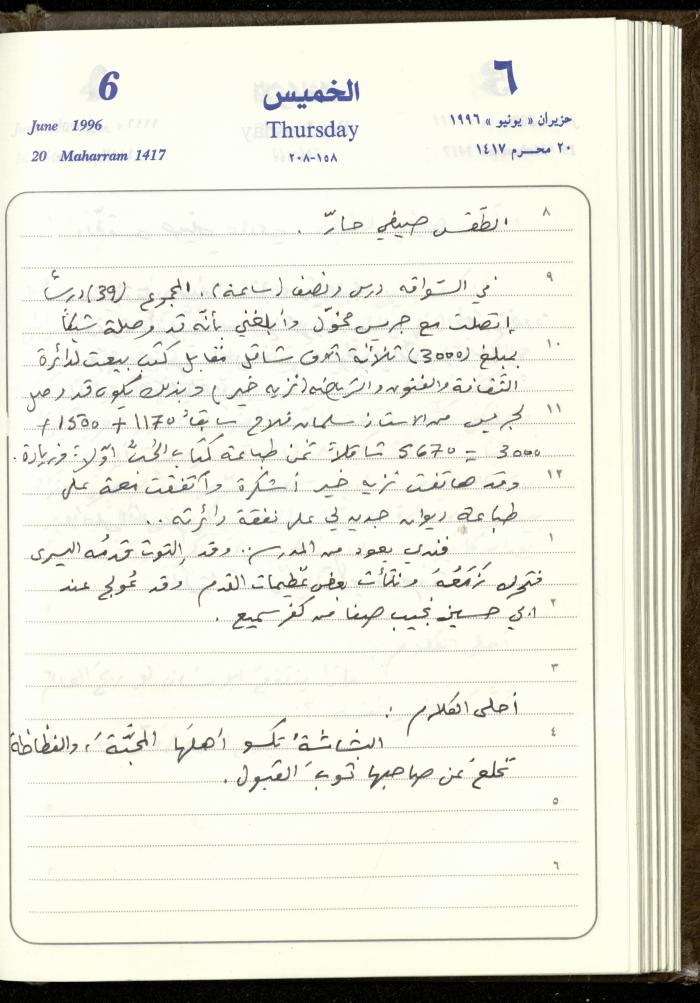 6 الخميس ٦
June 1996 Thursday حزيران « يونيو » ١٩٩٦
20 Maharram 1417 ٢٠٨-١٥٨ ٢٠ محرم ١٤١٧
٨ الطَقس صيفي حارّ .
٩ في السّواقه درس ونصف (ساعة). المجموع (39) درسًا
إتصلت مع جريس مخوّل وأبلغني بأنّه قد وصلة شيكًا
١٠ بمبلغ (3000) ثلاثة آلاف شاقل مقابل كتب بيعت لدائرة
الثقافة والفنون والرياضه (نزيه خير) وبذلك يكون قد وصل
١١ لجريس من الاستاذ سلمان فلاح سابقاً 1170 + 1500 +
3000 = 5670 شاقلاً ثمن طباعة كتاب الحُبُّ أوّلاً: فزيادة.
١٢ وقد هاتفت نزيه خير أشكرة وأتفقت معة على
طباعة ديوان جديد لي على نفقة دائرته ..
١ فندي يعود من المدرسة.. وقد إلتوت قدمُه اليسرى
فتحرك وَنتأت بعض عُظيمات القدم وقد عُولج عند
٢ ابي حسين نجيب صفا من كفر سميع .
٣
أحلى الكلام :
٤ البشاشةُ تكسو أهلَها المحبَّةَ، والفظاظة
تخلعُ عن صاحبها ثوبَ القبول .
٥
٦